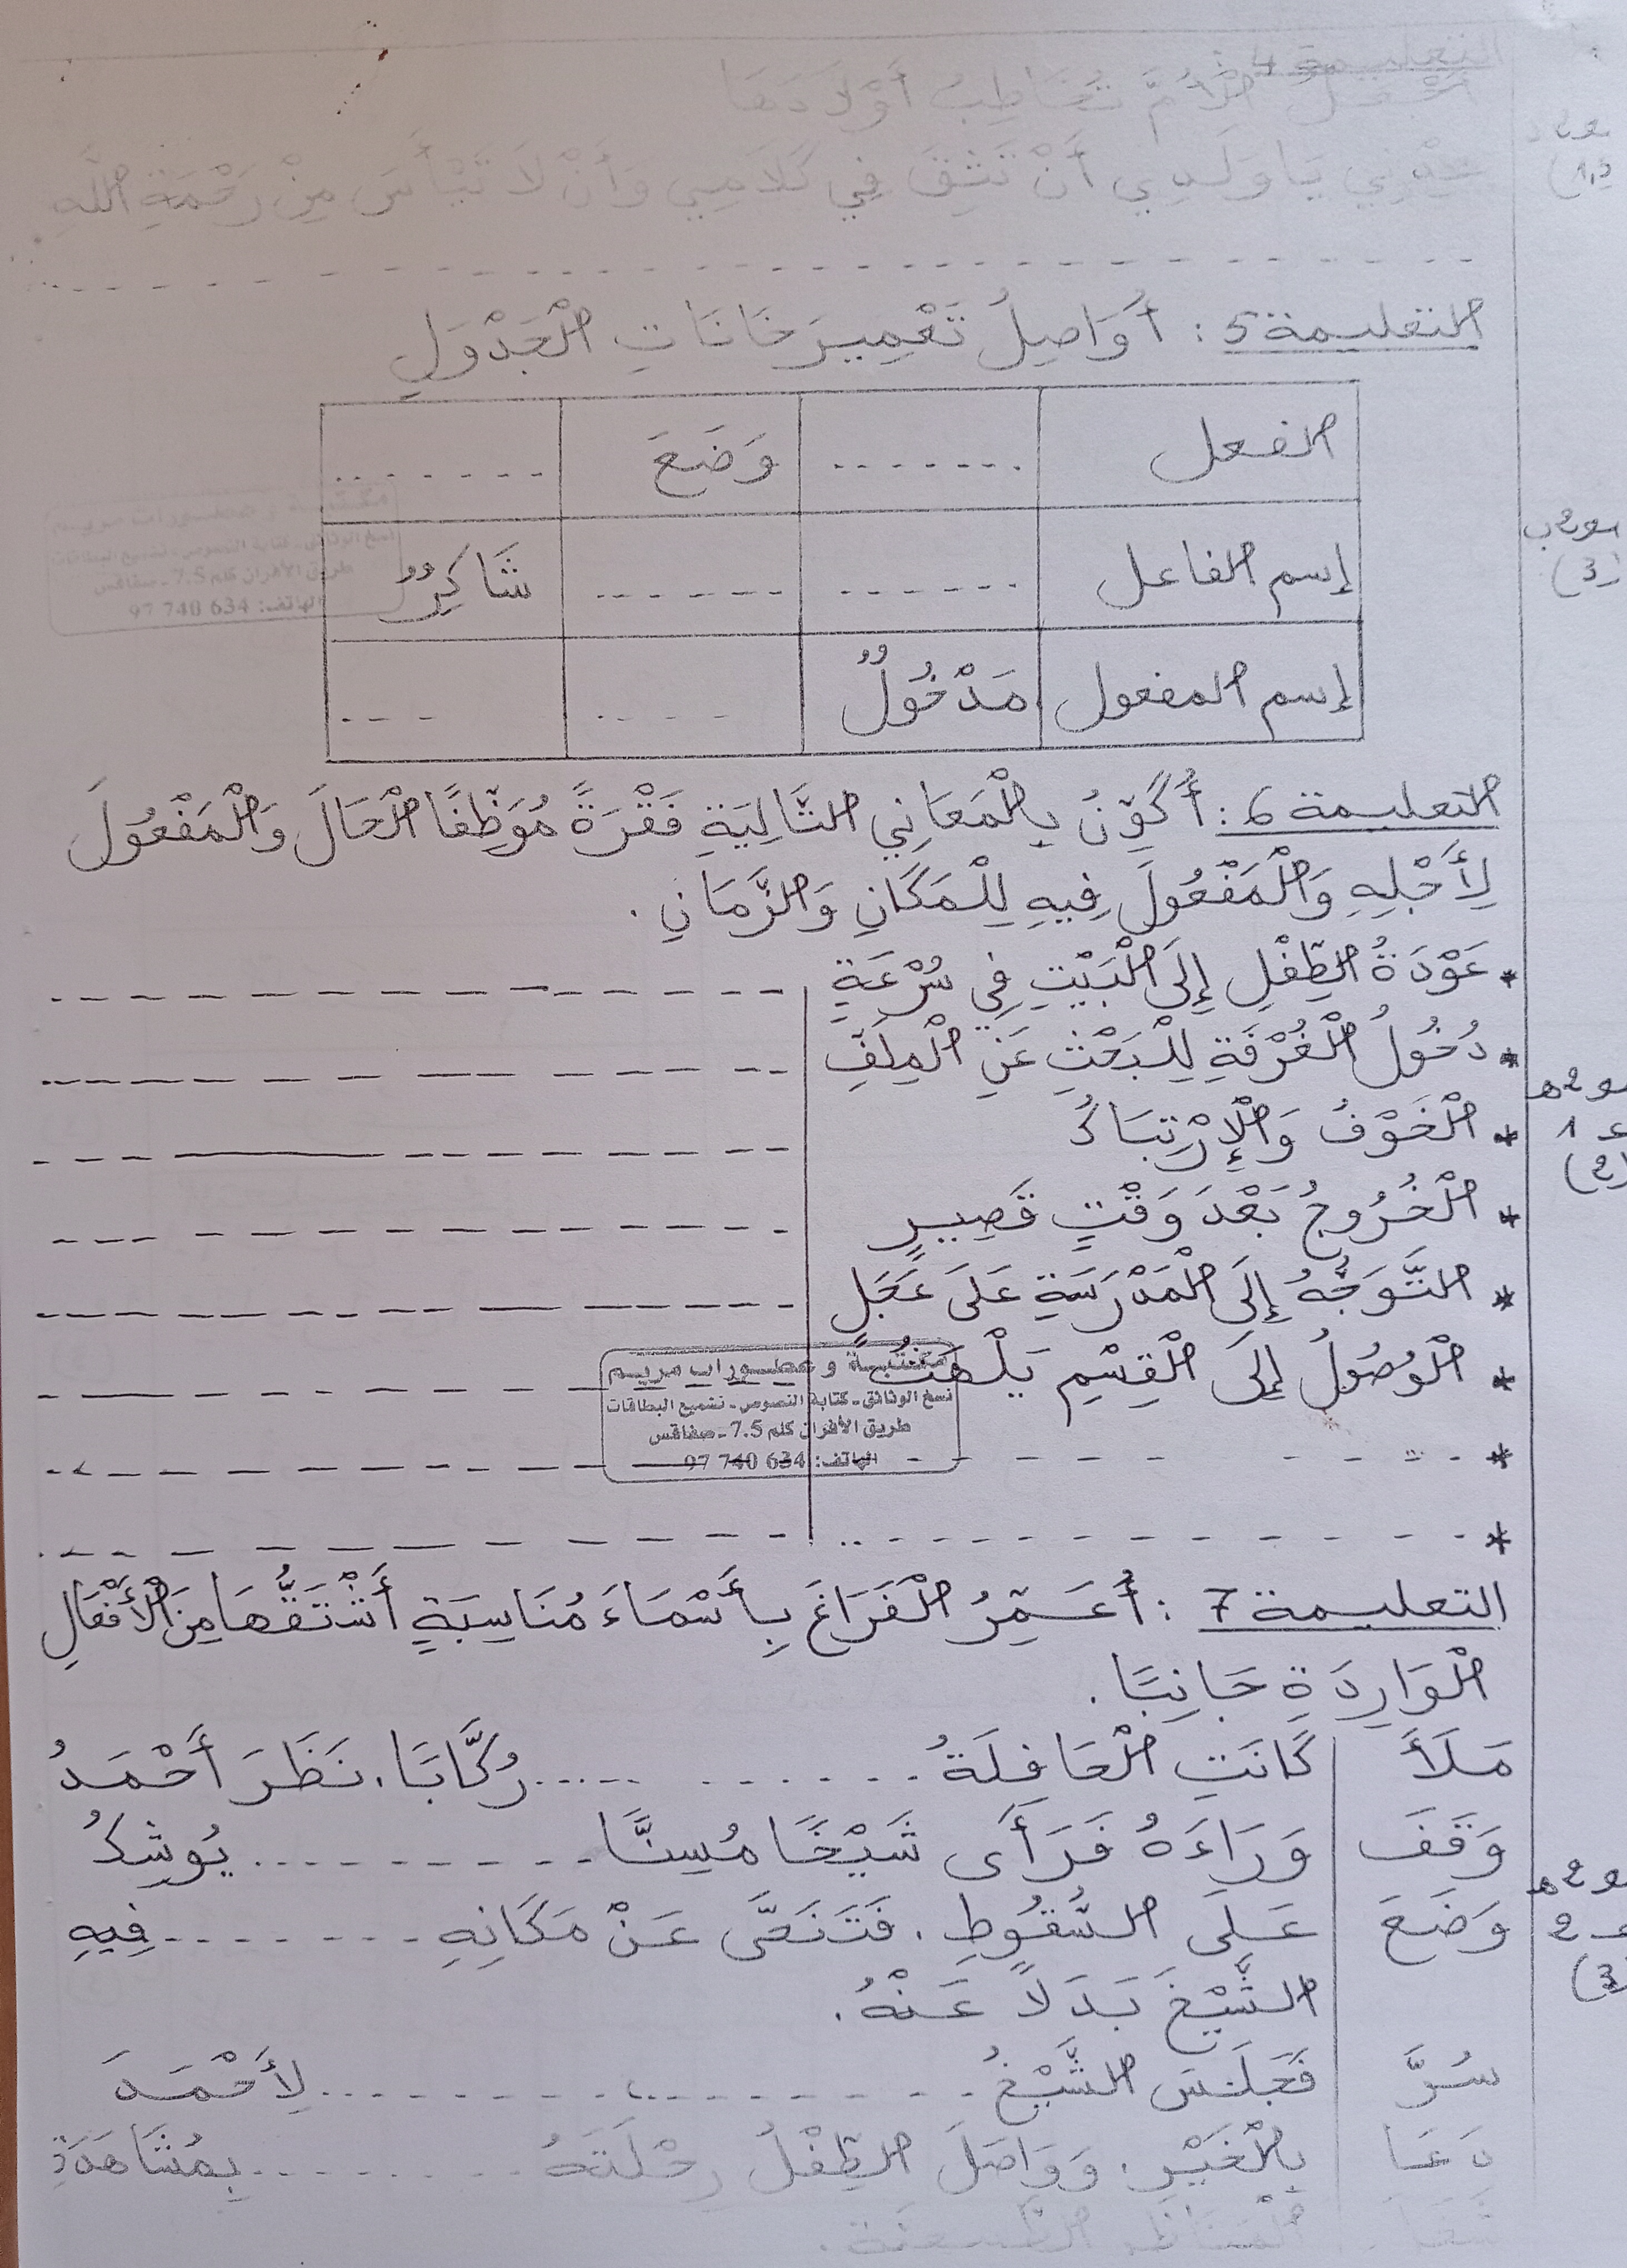 التعليمة 4:
أَجْعَلُ الْأُمَّ تُخَاطِبُ أَوْلَادَهَا
يَا وَلَدِي أَنْ تَثِقَ فِي كَلَامِي وَأَنْ لَا تَيْأَسَ مِنْ رَحْمَةِ اللَّهِ
التعليمة 5: أُوَاصِلُ تَعْمِيرَ خَانَاتِ الْجَدْوَلِ
الفعل ....... وَضَعَ .......
إسم الفاعل ...... ...... شَاكِرٌ
إسم المفعول مَدْخُولٌ .... ...
مع2ب
(3)
مكتبة و عطورات مريم
نسخ الوثائق - كتابة النصوص - تشميع البطاقات
طريق الأفران كلم 7.5 - صفاقس
الهاتف: 634 740 97
التعليمة 6: أُكَوِّنُ بِالْمَعَانِي التَّالِيَةِ فَقْرَةً مُوَظِّفًا الْحَالَ وَالْمَفْعُولَ
لِأَجْلِهِ وَالْمَفْعُولَ فِيهِ لِلْمَكَانِ وَالزَّمَانِ.
* عَوْدَةُ الطِّفْلِ إِلَى الْبَيْتِ فِي سُرْعَةٍ
* دُخُولُ الْغُرْفَةِ لِلْبَحْثِ عَنِ الْمِلَفِّ
* الْخَوْفُ وَالْإِرْتِبَاكُ
* الْخُرُوجُ بَعْدَ وَقْتٍ قَصِيرٍ
* التَّوَجُّهُ إِلَى الْمَدْرَسَةِ عَلَى عَجَلٍ
* الْوُصُولُ إِلَى الْقِسْمِ يَلْهَثُ
*
*
مع2ه
1
(2)
مكتبة و عطورات مريم
نسخ الوثائق - كتابة النصوص - تشميع البطاقات
طريق الأفران كلم 7.5 - صفاقس
الهاتف: 634 740 97
التعليمة 7: أُعَمِّرُ الْفَرَاغَ بِأَسْمَاءَ مُنَاسِبَةٍ أَشْتَقُّهَا مِنَ الْأَفْعَالِ
الْوَارِدَةِ جَانِبًا.
مَلَأَ كَانَتِ الْحَافِلَةُ ........... رُكَّابًا. نَظَرَ أَحْمَدُ
وَقَفَ وَرَاءَهُ فَرَأَى شَيْخًا مُسِنًّا........... يُوشِكُ
وَضَعَ عَلَى السُّقُوطِ. فَتَنَحَّى عَنْ مَكَانِهِ ......... فِيهِ
الشَّيْخَ بَدَلًا عَنْهُ.
سُرَّ فَجَلَسَ الشَّيْخُ ................ لِأَحْمَدَ
دَعَا بِالْخَيْرِ. وَوَاصَلَ الطِّفْلُ رِحْلَتَهُ ........... بِمُشَاهَدَةِ
مع2ه
2
(3)